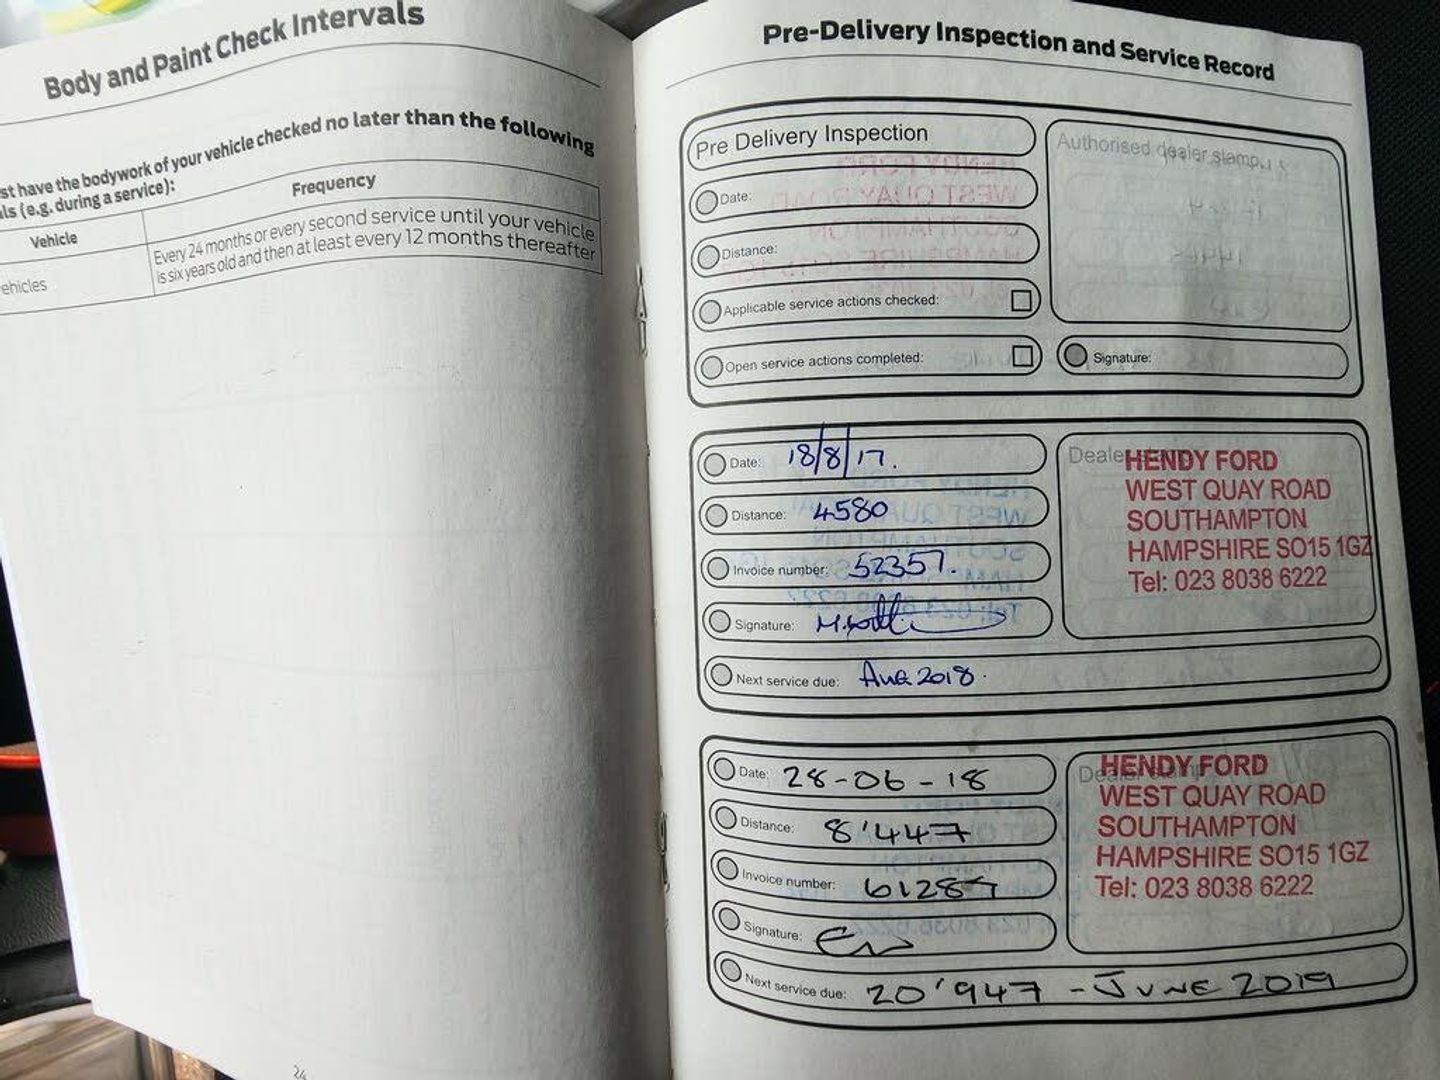 Body and Paint Check Intervals
st have the bodywork of your vehicle checked no later than the following
ls (e.g. during a service):
Vehicle
Frequency
ehicles
Every 24 months or every second service until your vehicle
is six years old and then at least every 12 months thereafter
24
Pre-Delivery Inspection and Service Record
Pre Delivery Inspection
Authorised dealer stamp
Date:
Distance:
Applicable service actions checked:
Open service actions completed:
Signature:
Date: 18/8/17.
Distance: 4580
Invoice number: 52357.
Signature:
Next service due: AUG 2018.
Deale
HENDY FORD
WEST QUAY ROAD
SOUTHAMPTON
HAMPSHIRE SO15 1GZ
Tel: 023 8038 6222
Date: 28-06-18
Distance: 8'447
Invoice number: 61287
Signature:
Next service due: 20'947 - JUNE 2019
Dealer stamp
HENDY FORD
WEST QUAY ROAD
SOUTHAMPTON
HAMPSHIRE SO15 1GZ
Tel: 023 8038 6222